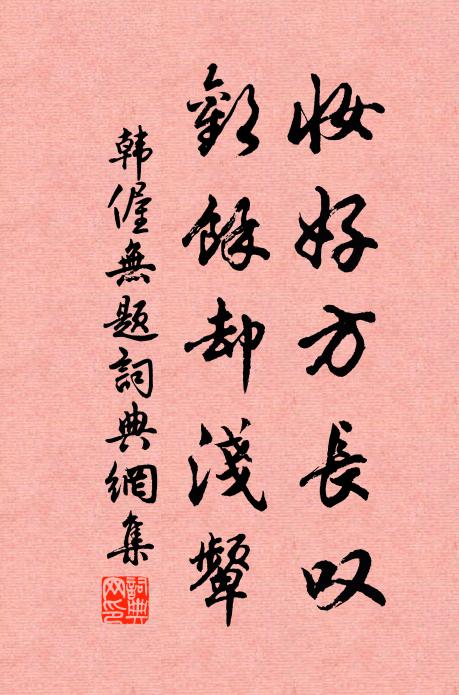 妆好方長叹
歡餘却淺顰
韩偓無题詞典網集
詞典网印